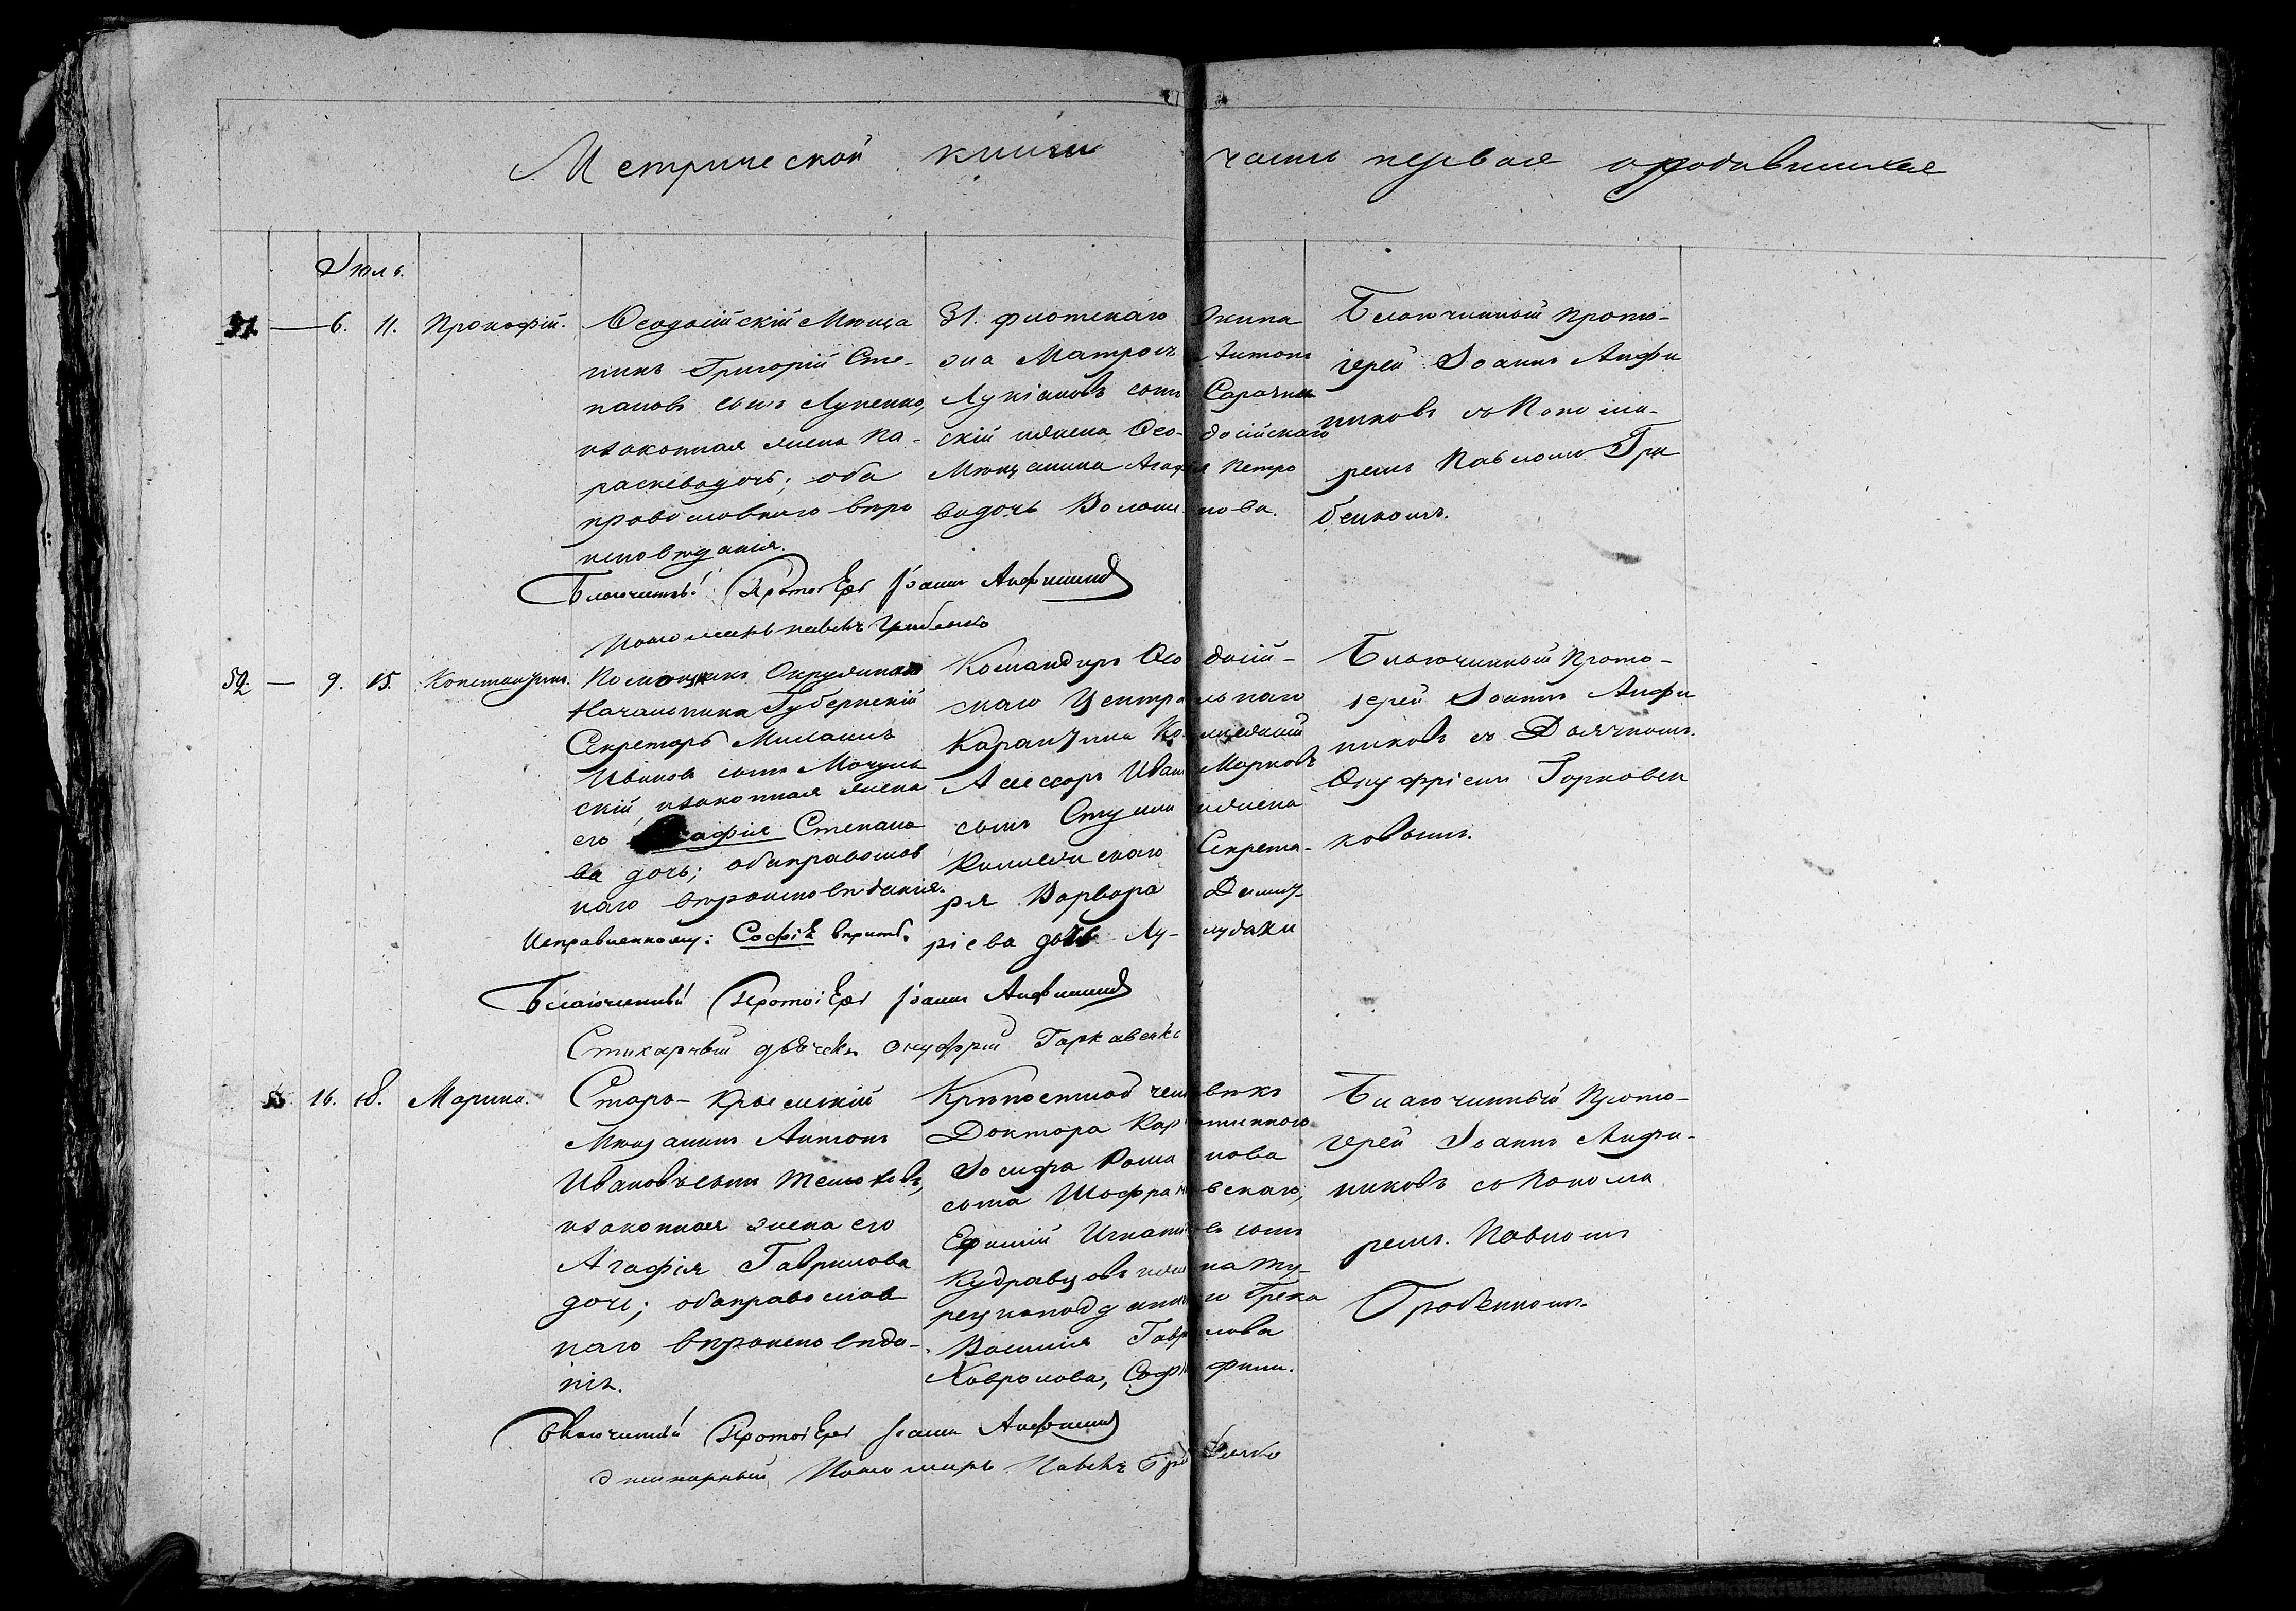 Метрической книги часть первая о родившихся
Іюль.
51. — 6. 11. Прокофій.
Ѳеодосійскій Мѣща
нинъ Григорій Сте-
пановъ сынъ Луценко,
изаконная жена Па-
раскевадочь; оба
православнаго вѣро
исповѣданія.
31. флотскаго Экипа
жа Матросъ Антонъ
Лукіановъ сынъ
скій ижена Ѳео- досійскаго
Мѣщанина Агафія Петро
вадочь Волоши нова.
Благочинный Прото-
іерей Іоаннъ Анфи
никовъ съ Понома-
ремъ Павломъ Гри
бенкомъ.
Благочинный Протоіерей Іоаннъ
Пономарь Павелъ Грибенко
52. — 9. 15. Константинъ.
Помощникъ Окружнаго
Начальника Губернскій
Секретарь
Ивановъ сынъ
скій, изаконная жена
его Степано
ва дочь; обаправослав
наго вѣроисповѣданія.
Исправленному: Софія вѣрить.
Командиръ Ѳео досій-
скаго Центра льнаго
Карантина Ко ллежскій
Ассесоръ Иванъ Марковъ
сынъ ижена
Коллежскаго Секрета-
ря Варвара Дмит-
ріева дочь Лу-
Благочинный Прото-
іерей Іоаннъ Анфи
никовъ съ Дьячкомъ.
Онуфріемъ Горковен
ковымъ.
Благочинный Протоіерей Іоаннъ
Стихарный дьячекъ Онуфрій Горкавенко
53. 16. 18. Марина.
Старо-Крымскій
Мѣщанинъ Антонъ
Ивановъсынъ
изаконная жена его
Агафія Гаврилова
дочь; обаправослав
наго вѣроисповѣда-
нія.
Крѣпостной чело вѣкъ
Доктора Кар антиннаго
Іосифа Рома нова
сына Шафрановскаго,
Ефимій Игнатьевъ сынъ
Кудравцовъ иже на Ту-
рецкоподданна го Грека
Василія Гаври лова
Благочинный Прото-
іерей Іоаннъ Анфи-
никовъ съ Понома
ремъ. Павломъ
Грибенкомъ.
Благочинный Протоіерей Іоаннъ
Стихарный Пономарь Павелъ Грибенко